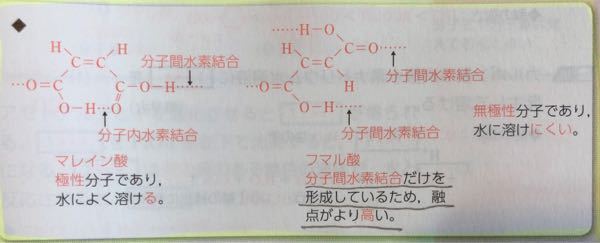 H H
C=C
分子間水素結合
O=C C-O-H
O-H O
分子内水素結合
マレイン酸
極性分子であり,
水によく溶ける。
H-O
H C=O
C=C
分子間水素結合
O=C H
O-H
分子間水素結合
フマル酸
分子間水素結合だけを
形成しているため, 融
点がより高い。
無極性分子であり,
水に溶けにくい。